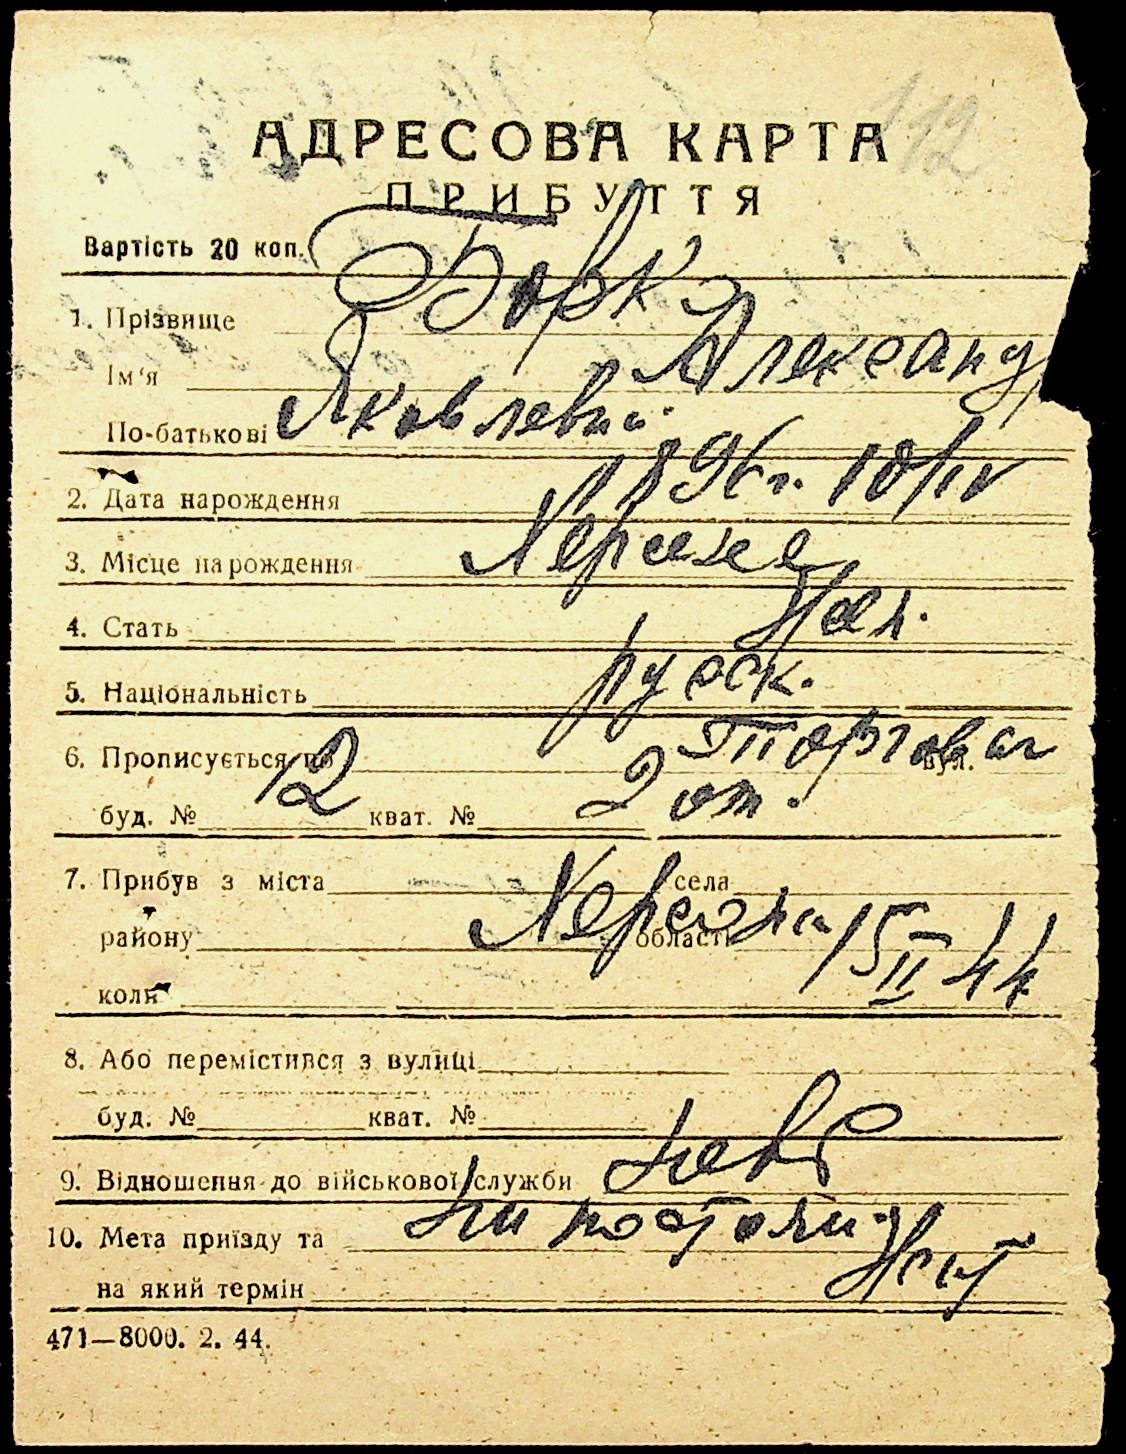 112
АДРЕСОВА КАРТА
ПРИБУТТЯ
Вартість 20 коп.
1. Прізвище Борк
Ім'я Александ
По-батькові Яковлевич
2. Дата нарождення 1896 г. 10/IV
3. Місце нарождення Херсоне
4. Стать
5. Національність русск.
6. Прописується по Торговая вул.
буд. № 12 кват. № 2 от.
7. Прибув з міста Херсона села
району області 15 II 44
коли
8. Або перемістився з вулиці
буд. № кват. №
9. Відношення до військової служби
10. Мета приїзду та
на який термін
471—8000. 2. 44.